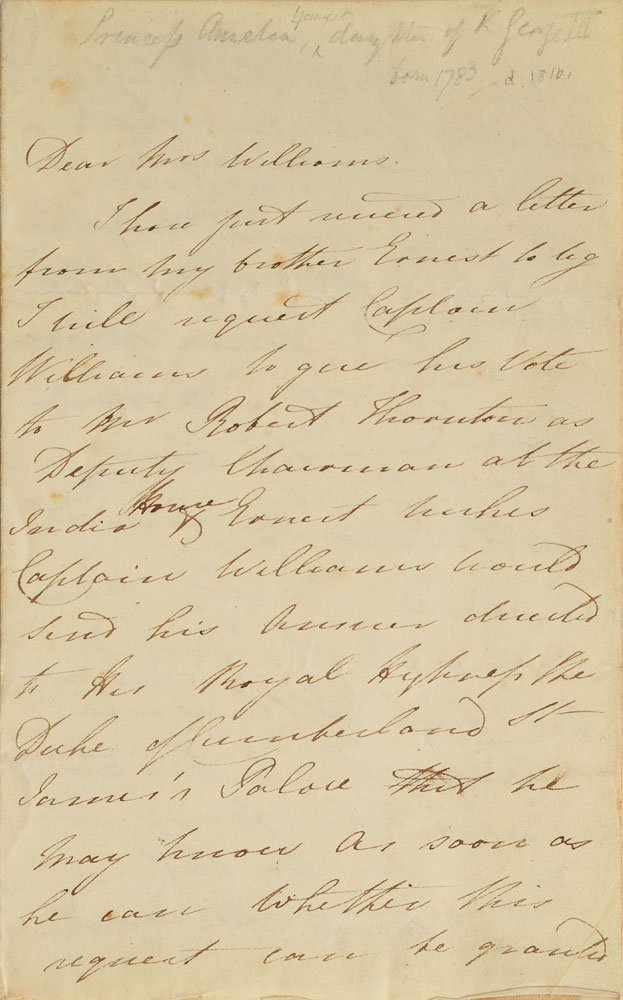 youngest
Princess Amelia, ^ daughter of K George III
born 1783 d. 1810
Dear Mrs Williams.
I have just received a letter
from my brother Ernest to beg
I will request Captain
Williams to give his Vote
to Mr Robert Thornton as
Deputy Chairman at the
India House & Ernest wishes
Captain Williams would
send his Answer directed
to His Royal Highness the
Duke of Cumberland St
James's Palace that he
may know as soon as
he can whether this
request can be granted